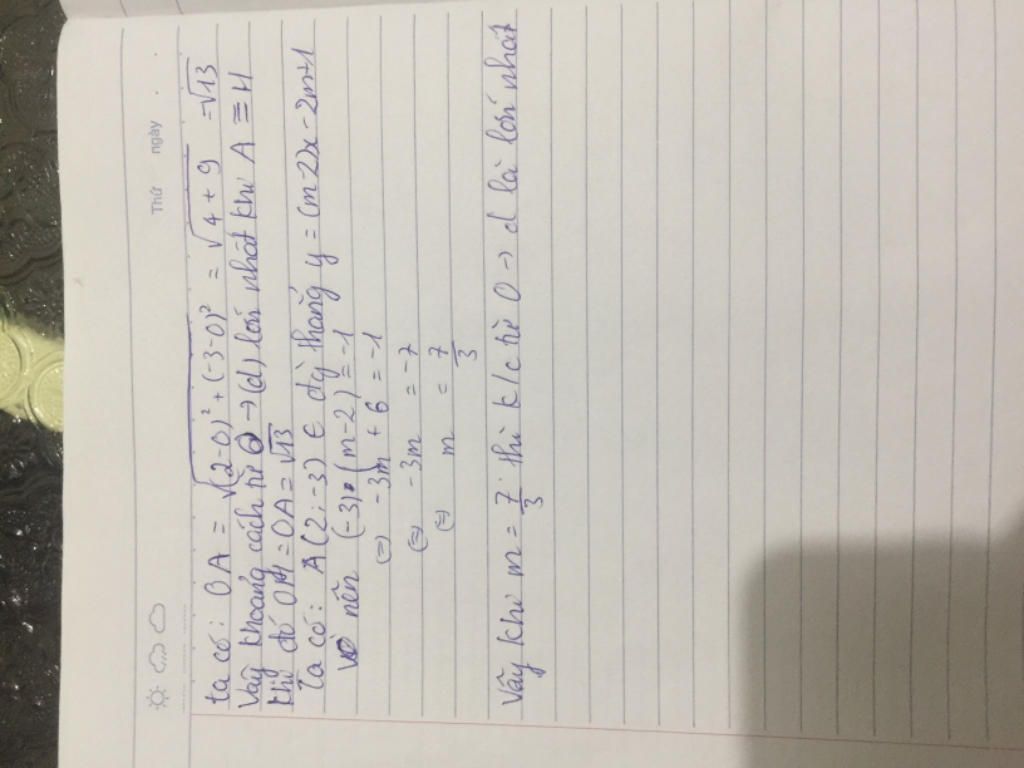 Thứ ngày
ta có: OA = √(2-0)² + (-3-0)² = √4 + 9 = √13
Vậy khoảng cách từ O → (d) lớn nhất khi A ≡ H
khi đó OH = OA = √13
Ta có: A(2;-3) ∈ đg thẳng y = (m-2)x - 2m+1
nên (-3).(m-2) = -1
(=) -3m + 6 = -1
(=) -3m = -7
(=) m = 7/3
Vậy khi m = 7/3 thì k/c từ O → d là lớn nhất